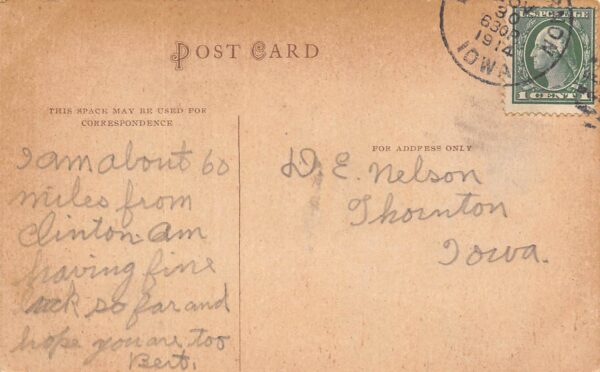 POST CARD
30
630P
1914
IOWA
U.S. POSTAGE
1 CENT 1
THIS SPACE MAY BE USED FOR
CORRESPONDENCE
FOR ADDRESS ONLY
I am about 60
miles from
Clinton. Am
having fine
luck so far and
hope you are too
Bert.
D. E. Nelson
Thornton
Iowa.